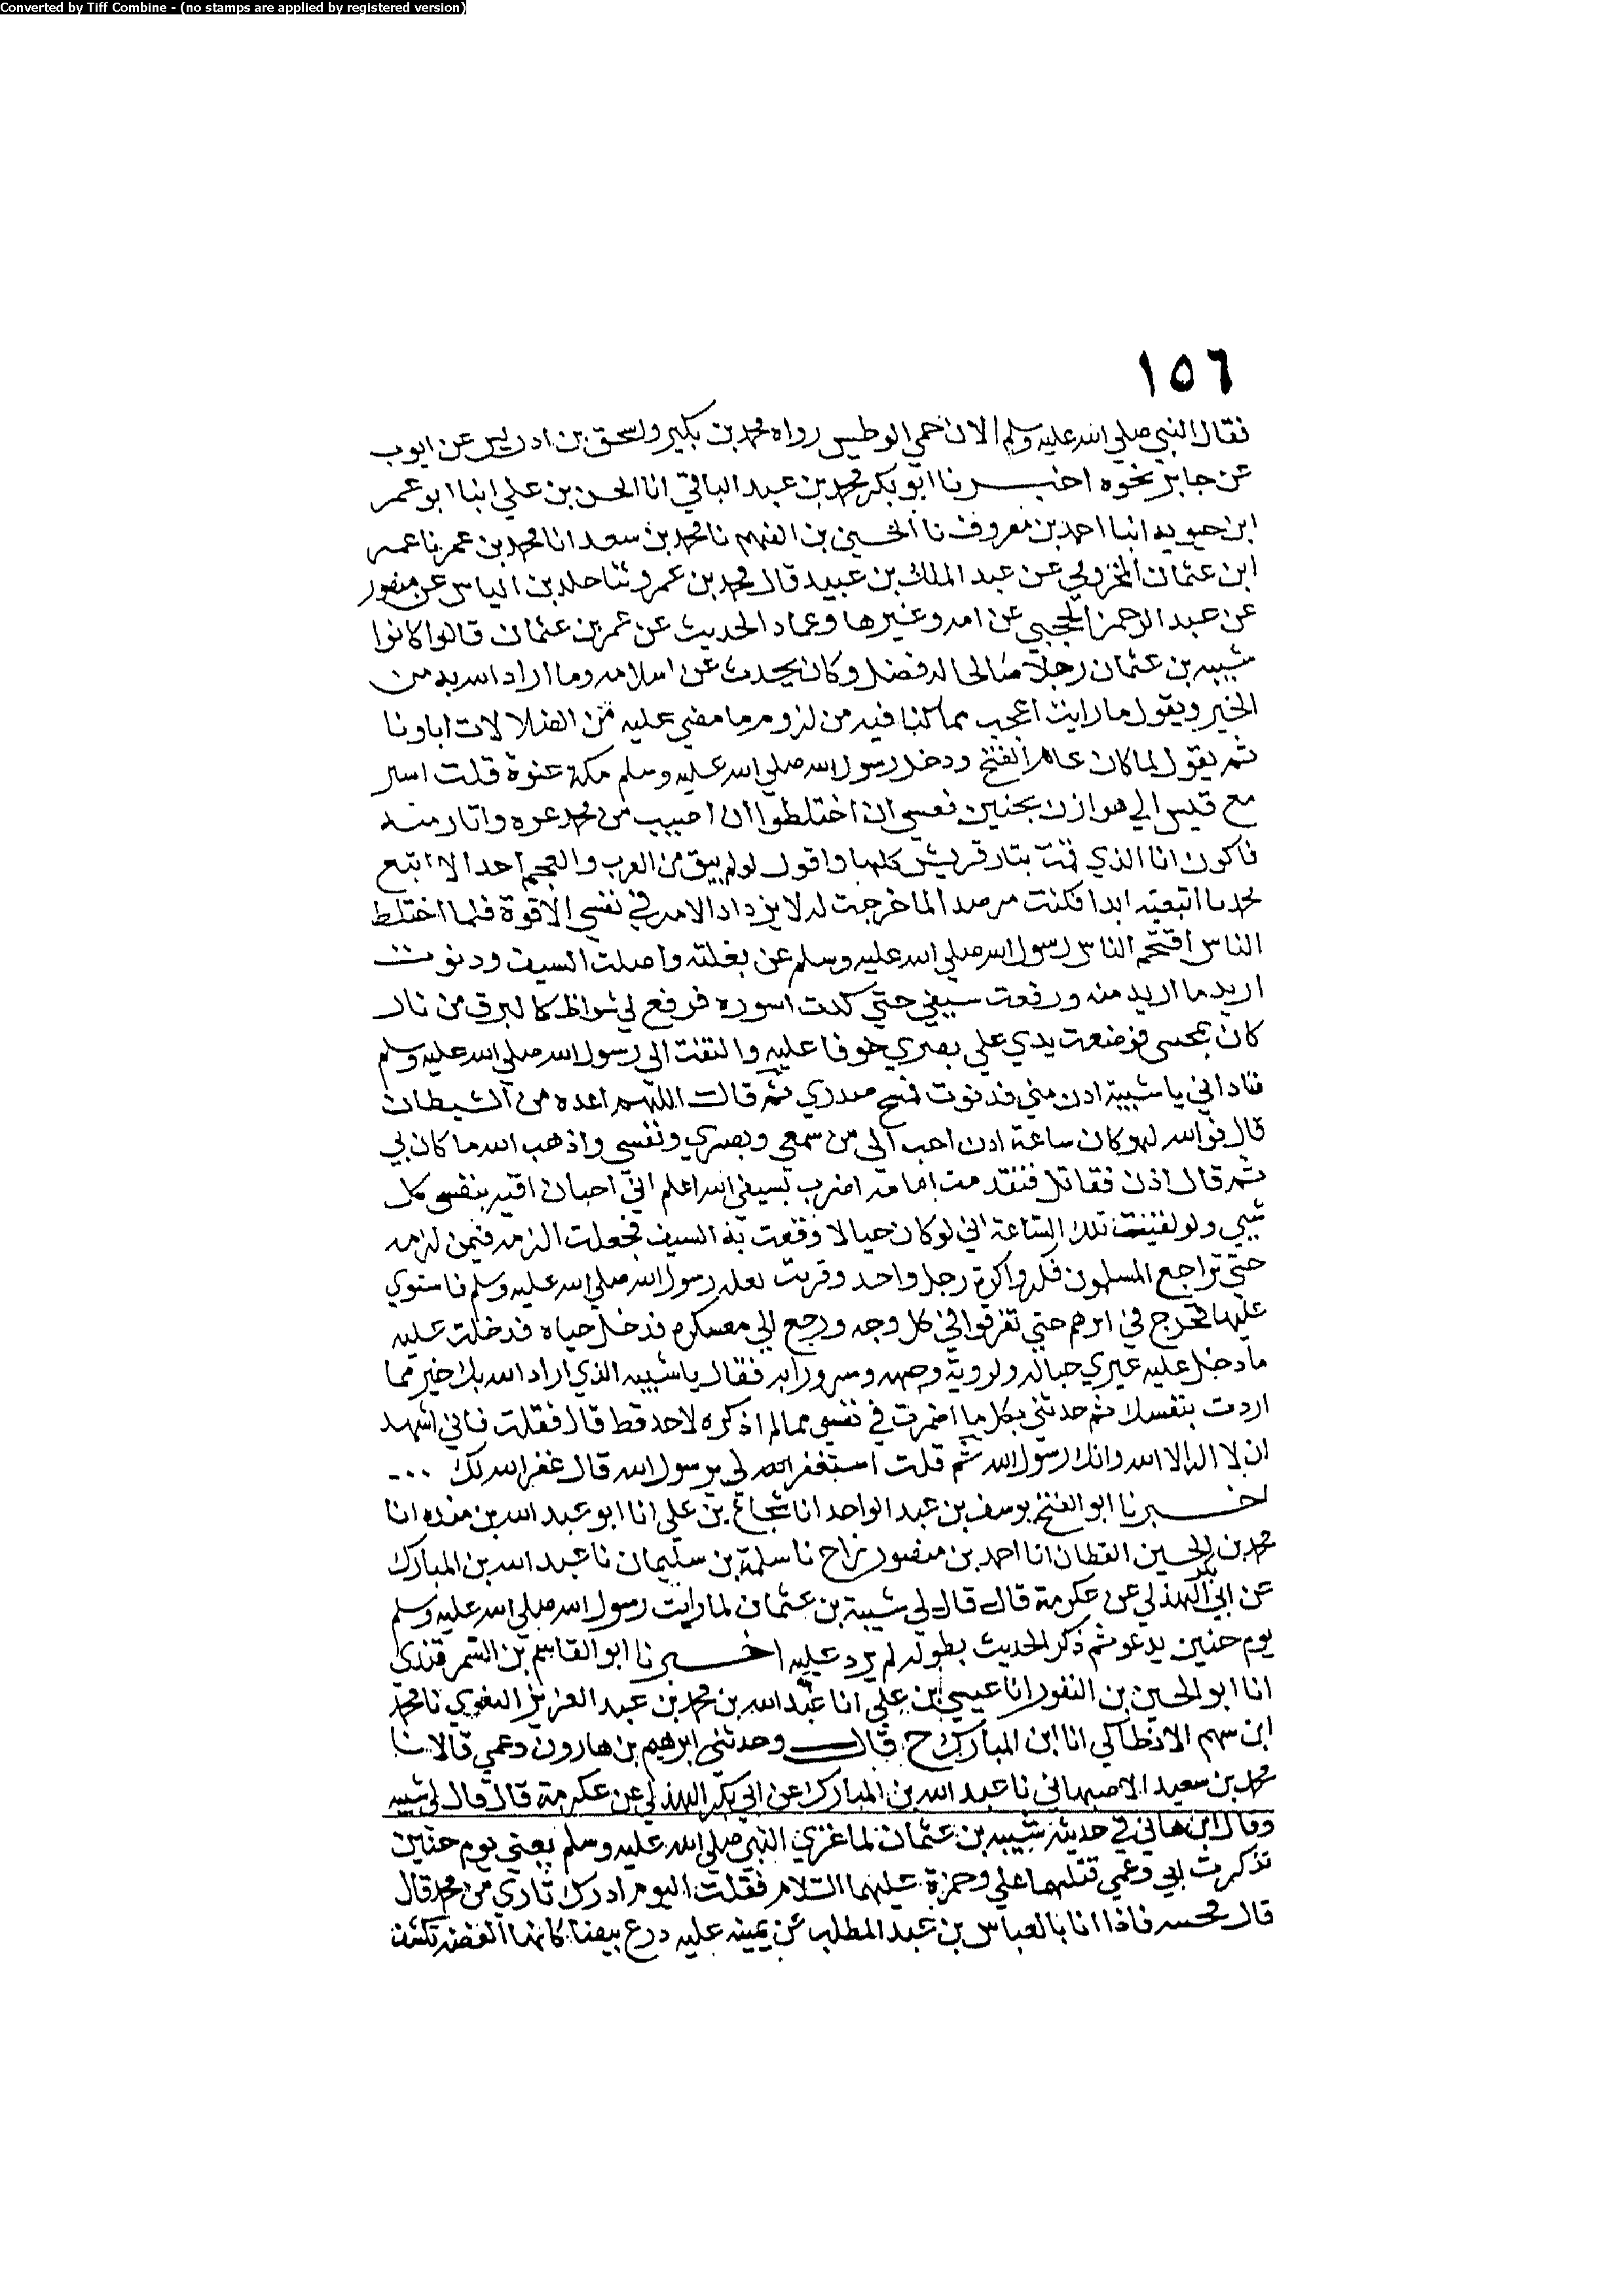 Converted by Tiff Combine - (no stamps are applied by registered version)
١٥٦
فقال النبي صلي الله عليه وسلم الان حمي الوطيس رواه محمد بن بكير واسحق بن ادريس عن ايوب
عن جابر نحوه اخبرنا ابو بكر محمد بن عبد الباقي انا الحسن بن علي انبا ابو عمر
ابن حيويه انبا احمد بن معروف نا الحسين بن الفهم نا محمد بن سعد انا محمد بن عمر نا عمر
ابن عثمان المخزومي عن عبد الملك بن عبيد قال محمد بن عمر وثنا خلد بن الياس عن منصور
عن عبد الرحمن الحجبي عن امه وغيرها وعماد الحديث عن عمر بن عثمان قالوا كانوا
شيبه بن عثمان رجلا صالحا له فضل وكان يحدث عن اسلامه وما اراد الله به من
الخير ويقول ما رايت اعجب مما كنا فيه من لزوم ما مضي عليه من الضلالات اباونا
ثم يقول لما كان عام الفتح ودخل رسول الله صلي الله عليه وسلم مكة عنوة قلت اسير
مع قيس الي هوازن بحنين فعسي ان اختلطوا ان اصيب من محمد غره واثار منه
فاكون انا الذي قمت بثار قريش كلها واقول لو لم يبق من العرب والعجم احدا الا اتبع
محمدا ما اتبعته ابدا فكنت مرصدا لما خرجت له لا يزداد الامر في نفسي الا قوة فلما اختلط
الناس اقتحم الناس رسول الله صلي الله عليه وسلم عن بغلته واصلت السيف ودنوت
اريد ما اريد منه ورفعت سيفي حتي كدت اسوره فرفع لي شواظ كالبرق من نار
كان يمحسى فوضعت يدي علي بصري خوفا عليه والتفت الي رسول الله صلي الله عليه وسلم
فناداني يا شيبة ادن مني فدنوت فمسح صدري ثم قال اللهم اعده من الشيطان
قال فوالله لهو كان ساعة ادن احب الي من سمعي وبصري ونفسي واذهب الله ما كان بي
ثم قال اذن فقاتل فتقدمت امامه اضرب بسيفي الله اعلم اني احب ان اقيه بنفسي كل
شي ولو لقيت تلك الساعة ابي لو كان حيا لاوقعت به السيف فجعلت الزمه فيمن لزمه
حتي تراجع المسلمون فكروا كرة رجل واحد وقربت بعله رسول الله صلي الله عليه وسلم فاستوي
عليها فخرج في اثرهم حتي تفرقوا في كل وجه ورجع الي معسكره فدخل خباه فدخلت عليه
ما دخل عليه غيري حبا له ولروية وجهه وسرورا به فقال يا شيبه الذي اراد الله بك خير مما
اردت بنفسك ثم حدثني بكل ما اضمرت في نفسي مما لم اذكره لاحد قط قال فقلت فاني اشهد
ان لا اله الا الله وانك رسول الله ثم قلت استغفر الله لي يرسول الله قال غفر الله لك
اخبرنا ابو الفتح يوسف بن عبد الواحد انا شجاع بن علي انا ابو عبد الله بن منده انا
محمد بن الحسين القطان انا احمد بن منصور زاج نا سلمة بن سليمان نا عبد الله بن المبارك
عن ابي بكر الهذلي عن عكرمة قال قال لي شيبة بن عثمان لما رايت رسول الله صلي الله عليه وسلم
يوم حنين يدعو ثم ذكر الحديث بطوله لم يزد عليه اخبرنا ابو القاسم بن السمرقندي
انا ابو الحسين بن النقور انا عيسي بن علي انا عبد الله بن محمد بن عبد العزيز البغوي نا محمد
ابن سهم الانطاكي انا ابن المبارك ح قال وحدثني ابرهيم بن هارون وعمي قالا نا
محمد بن سعيد الاصبهاني نا عبد الله بن المبارك عن ابي بكر الهذلي عن عكرمة قال قال لي شيبه
وقال ابن هاني في حديثه شيبه بن عثمان لما غزي النبي صلي الله عليه وسلم يعني يوم حنين
تذكرت ابي وعمي قتلهما علي وحمزة عليهما السلام فقلت اليوم ادرك ثاري من محمد قال
قال فجئته فاذا انا بالعباس بن عبد المطلب عن يمينه عليه درع بيضا كانها الفضه تكشف